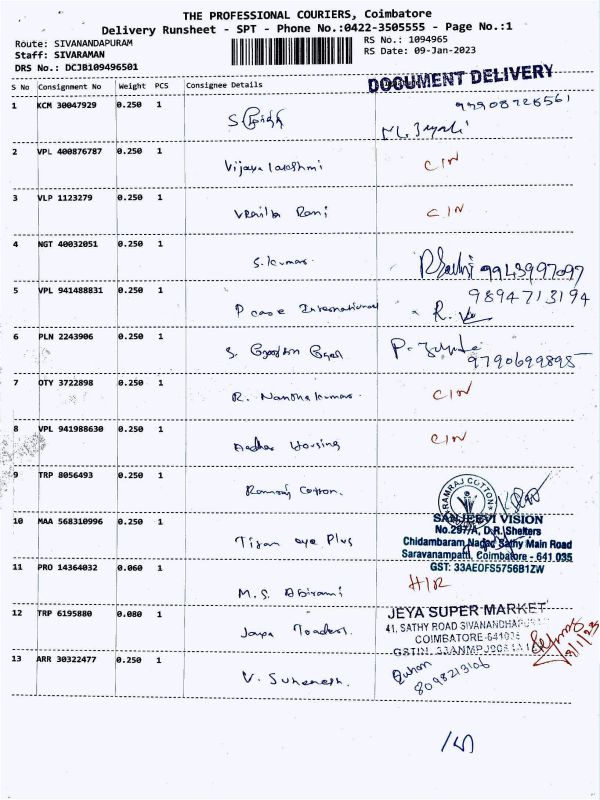 THE PROFESSIONAL COURIERS, Coimbatore
Delivery Runsheet - SPT - Phone No.:0422-3505555 - Page No.:1
Route: SIVANANDAPURAM
Staff: SIVARAMAN
DRS No.: DCJB109496501
RS No.: 1094965
RS Date: 09-Jan-2023
DOCUMENT DELIVERY
S No Consignment No Weight PCS Consignee Details
1 KCM 30047929 0.250 1
2 VPL 400876787 0.250 1 Vijaya lakshmi CIN
3 VLP 1123279 0.250 1 Rani CIN
4 NGT 40032051 0.250 1 S. Kumar 9943997097
5 VPL 941488831 0.250 1 P case International 9894713194
6 PLN 2243906 0.250 1 9790699895
7 OTY 3722898 0.250 1 R. Nanthakumar CIN
8 VPL 941988630 0.250 1 Aadhar Housing CIN
9 TRP 8056493 0.250 1 Ramraj Cotton. RAMRAJ COTTON
10 MAA 568310996 0.250 1 Titan eye Plus
SANJEEVI VISION
No.297/A, D.R. Shelters
Chidambaram Nagar, Sathy Main Road
Saravanampatti, Coimbatore - 641 035
11 PRO 14364032 0.060 1 M.S. Abirami H/R
12 TRP 6195880 0.080 1 Jaya Traders.
JEYA SUPER MARKET
41, SATHY ROAD SIVANANDHAPURAM
COIMBATORE-641035
13 ARR 30322477 0.250 1 V. Suhanesh. 8098213106